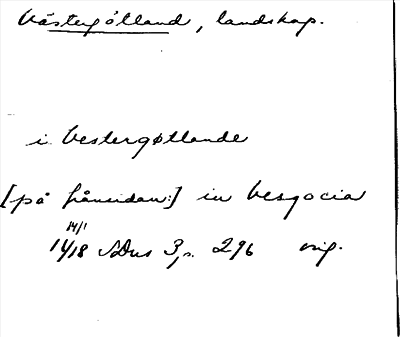 Västergötland, landskap.
i Vestergøtlande
[på frånsidan:] in Vesgocia
14/1
1418 SDns 3, s. 296 orig.